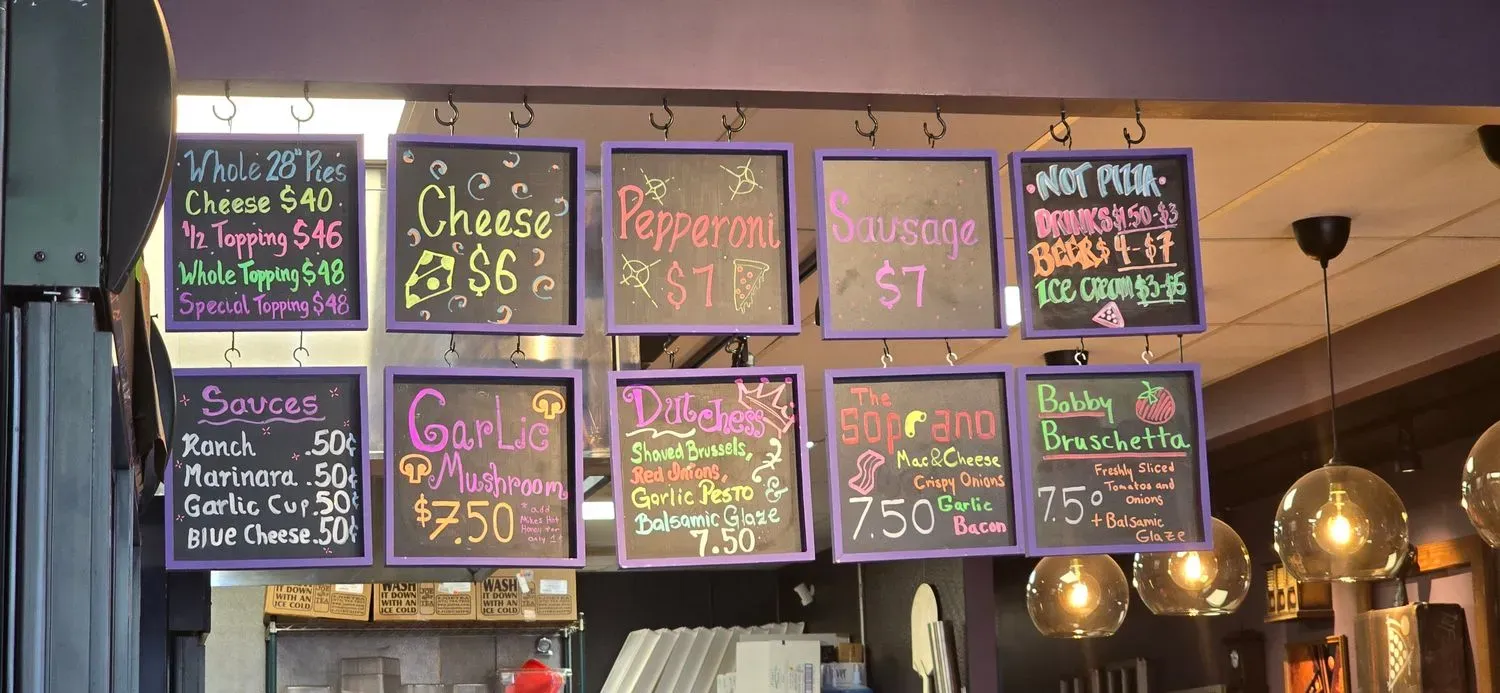 Whole 28" Pies
Cheese $40
1/2 Topping $46
Whole Topping $48
Special Topping $48
Cheese
$6
Pepperoni
$7
Sausage
$7
NOT PIZZA
DRINKS $1.50-$3
BEERS 4-$7
ICE CREAM $3-$5
Sauces
Ranch .50¢
Marinara .50¢
Garlic Cup .50¢
Blue Cheese .50¢
Garlic
Mushroom
$7.50
* add
Mikes Hot
Honey for
only 1$
Dutchess
Shaved Brussels,
Red Onions,
Garlic Pesto
&
Balsamic Glaze
7.50
The
Soprano
Mac & Cheese
Crispy Onions
7.50 Garlic
Bacon
Bobby
Bruschetta
Freshly Sliced
Tomatos and
Onions
7.50
+ Balsamic
Glaze
WASH
IT DOWN
WITH AN
ICE COLD
WASH
IT DOWN
WITH AN
ICE COLD
WASH
IT DOWN
WITH AN
ICE COLD